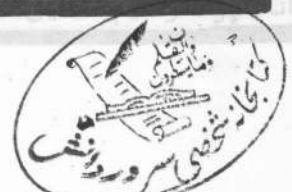 ن والقلم
وما يسطرون
کتابخانه شخصی سرور دانش